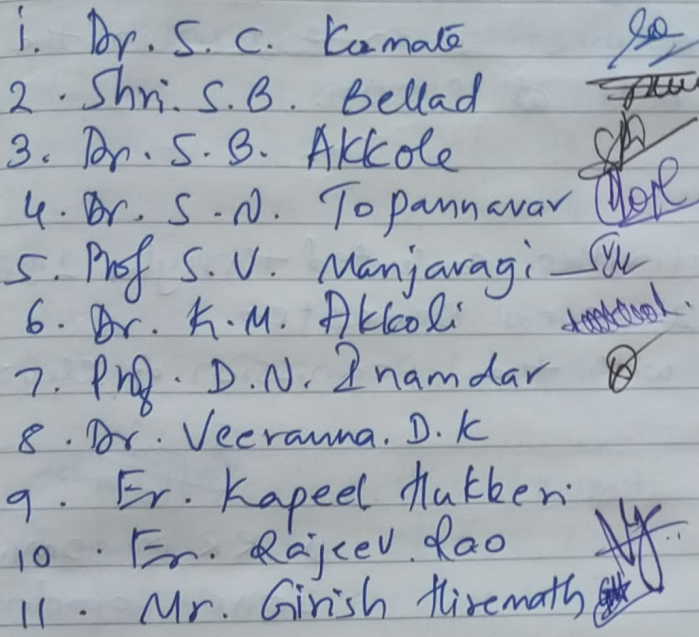 1. Dr. S. C. Kamate
2. Shri. S. B. Bellad
3. Dr. S. B. Akkole
4. Dr. S. N. Topannavar
5. Prof S. V. Manjaragi
6. Dr. K. M. Akkoli
7. Prof. D. N. Inamdar
8. Dr. Veeranna. D. K
9. Er. Kapeel Hukkeri
10. Er. Rajeev Rao
11. Mr. Girish Hiremath